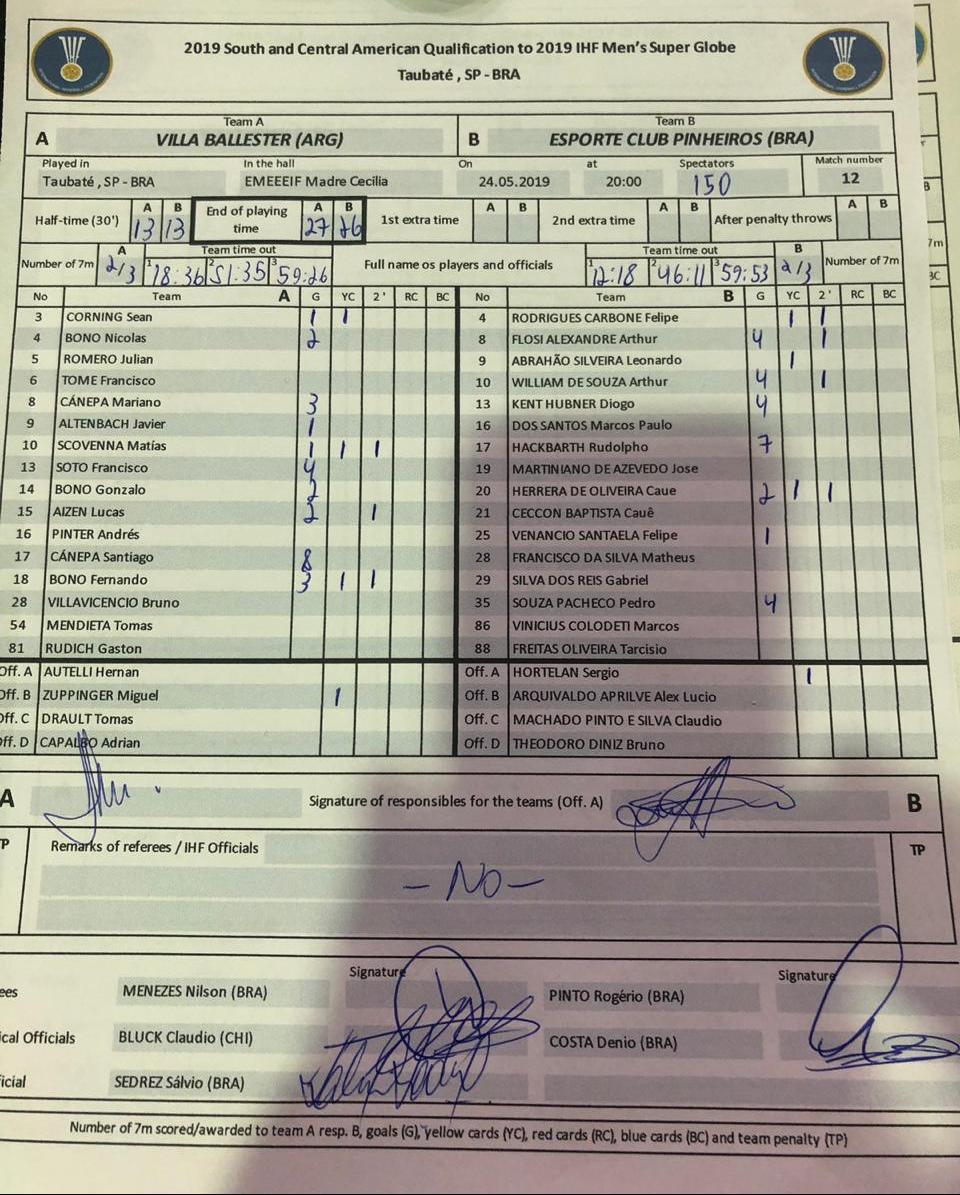 2019 South and Central American Qualification to 2019 IHF Men's Super Globe
Taubaté , SP - BRA
Team A Team B
A VILLA BALLESTER (ARG) B ESPORTE CLUB PINHEIROS (BRA)
Played in In the hall On at Spectators Match number
Taubaté , SP - BRA EMEEEIF Madre Cecilia 24.05.2019 20:00 150 12
Half-time (30') A B 13 13 End of playing time A B 27 26 1st extra time A B 2nd extra time A B After penalty throws A B
Number of 7m A 2/3 Team time out 1 18:36 2 51:35 3 59:26 Full name os players and officials Team time out 1 12:18 2 46:11 3 59:53 B 2/3 Number of 7m
No Team A G YC 2' RC BC No Team B G YC 2' RC BC
3 CORNING Sean 1 1 4 RODRIGUES CARBONE Felipe 1 1
4 BONO Nicolas 2 8 FLOSI ALEXANDRE Arthur 4 1
5 ROMERO Julian 9 ABRAHÃO SILVEIRA Leonardo 1
6 TOME Francisco 10 WILLIAM DE SOUZA Arthur 4 1
8 CÁNEPA Mariano 3 13 KENT HUBNER Diogo 4
9 ALTENBACH Javier 1 16 DOS SANTOS Marcos Paulo
10 SCOVENNA Matías 1 1 1 17 HACKBARTH Rudolpho 7
13 SOTO Francisco 4 19 MARTINIANO DE AZEVEDO Jose
14 BONO Gonzalo 2 20 HERRERA DE OLIVEIRA Caue 2 1 1
15 AIZEN Lucas 2 1 21 CECCON BAPTISTA Cauê
16 PINTER Andrés 25 VENANCIO SANTAELA Felipe 1
17 CÁNEPA Santiago 8 28 FRANCISCO DA SILVA Matheus
18 BONO Fernando 3 1 1 29 SILVA DOS REIS Gabriel
28 VILLAVICENCIO Bruno 35 SOUZA PACHECO Pedro 4
54 MENDIETA Tomas 86 VINICIUS COLODETI Marcos
81 RUDICH Gaston 88 FREITAS OLIVEIRA Tarcisio
Off. A AUTELLI Hernan Off. A HORTELAN Sergio 1
Off. B ZUPPINGER Miguel 1 Off. B ARQUIVALDO APRILVE Alex Lucio
Off. C DRAULT Tomas Off. C MACHADO PINTO E SILVA Claudio
Off. D CAPALBO Adrian Off. D THEODORO DINIZ Bruno
A Signature of responsibles for the teams (Off. A) B
TP Remarks of referees / IHF Officials TP
- No -
Signature Signature
ees MENEZES Nilson (BRA) PINTO Rogério (BRA)
cal Officials BLUCK Claudio (CHI) COSTA Denio (BRA)
icial SEDREZ Sálvio (BRA)
Number of 7m scored/awarded to team A resp. B, goals (G), yellow cards (YC), red cards (RC), blue cards (BC) and team penalty (TP)